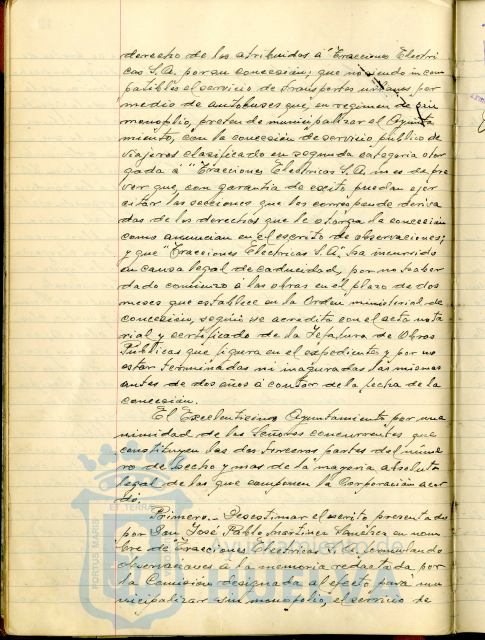 derecho de los atribuidos á "Tracciones Electri
cas S.A. por su concesión; que no siendo incom
patibles el servicio de transportes urbanos por
medio de autobuses que, en regimen de sin
monopolio, pretende municipalizar el Ayunta
miento, con la concesión de servicio público de
viajeros clasificado en segunda categoria otor
gada á "Tracciones Electricas S.A. no es de pre
ver que, con garantia de exito puedan ejer
citar las acciones que les corresponde deriva
das de los derechos que le otorga la concesión
como anuncian en el escrito de observaciones;
y que "Tracciones Electricas S.A". ha incurrido
en causa legal de caducidad, por no haber
dado comienzo á las obras en el plazo de dos
meses que establece en la Orden ministerial de
concesión, según se acredita con el acta nota
rial y certificado de la Jefatura de Obras
Públicas que figura en el expediente y por no
estar terminadas ni inaguradas las mismas
antes de dos años á contar de la fecha de la
concesión.
El Excelentisimo Ayuntamiento por una
nimidad de los Señores concurrentes que
constituyen las dos terceras partes del núme
ro de hecho y mas de la mayoria absoluta
legal de los que componen la Corporación acor
dó:
Primero.- Desestimar el escrito presentado
por Don José Pablo Martinez Sanchez en nom
bre de Tracciones Electricas S.A. formulando
observaciones á la memoria redactada por
la Comisión designada al efecto para mu
nicipalizar sin monopolio, el servicio de
PORTUS MARIS
ET TERRAE
Ayuntamiento de
HUELVA